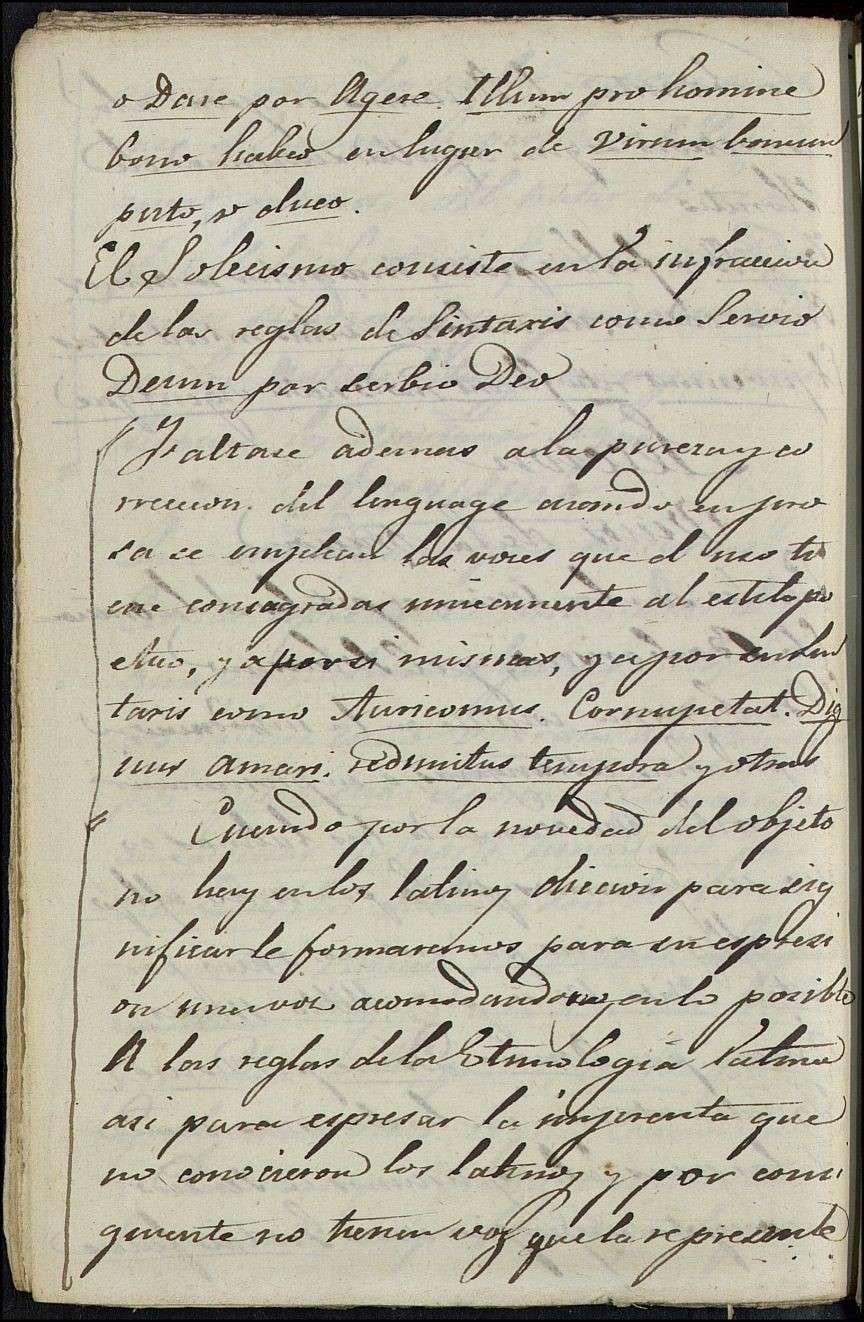 o Dare por Agere. Illum pro homine
bono habeo en lugar de Virum bonum
puto, o duco.
El Solecismo consiste en la infraccion
de las reglas de Sintaxis como Servio
Deum por serbio Deo
Faltase ademas a la pureza y co
rreccion del lenguage cuando en pro
sa se emplean las voces que el uso ti
ene consagradas unicamente al estilo po
etico, ya por si mismas, ya por en Sin
taxis como Auricomus. Cornupetat. Dig
nus amari. redimitus tempora y otras
Cuando por la novedad del objeto
no hay en los latinos diccion para sig
nificarle formaremos para su espresi
on una voz acomodandonos en lo posible
A las reglas de la Etimologia latina
asi para espresar la imprenta que
no conocieron los latinos y por consi
guiente no tienen voz que la represente